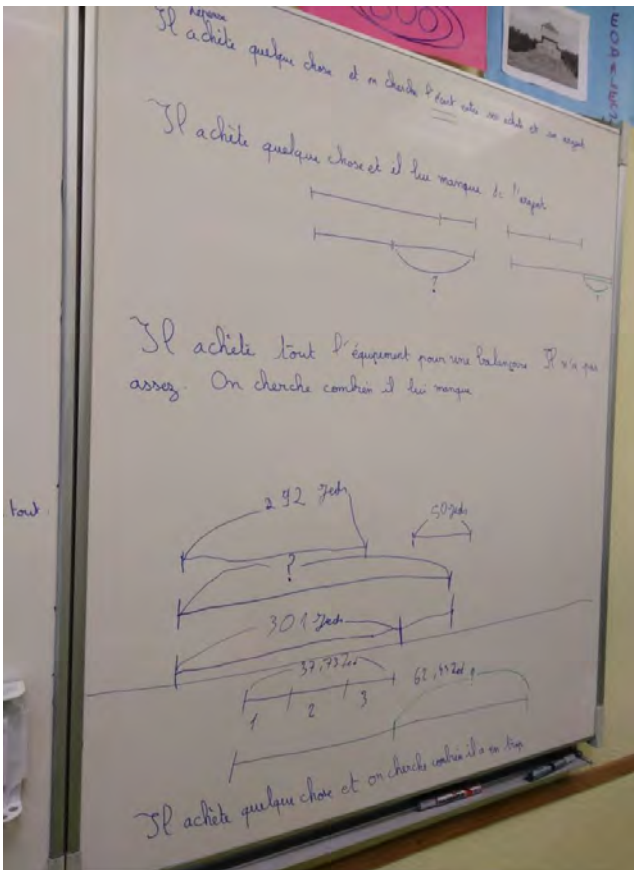 Réponse
Il achète quelque chose et on cherche l'écart entre son achat et son argent
Il achète quelque chose et il lui manque de l'argent
?
?
Il achète tout l'équipement pour une balançoire Il n'a pas
assez. On cherche combien il lui manque
tout.
292 zeds
50 zeds
?
301 zeds
37,73 zed
1 2 3
?
Il achète quelque chose et on cherche combien il a en trop